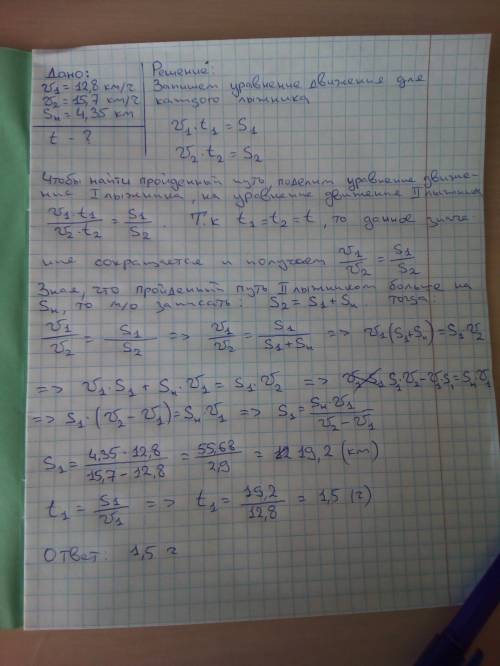 Дано:
v₁ = 12,8 км/ч
v₂ = 15,7 км/ч
Sн = 4,35 км
t - ?
Решение:
Запишем уравнение движения для
каждого лыжника
v₁·t₁ = S₁
v₂·t₂ = S₂
Чтобы найти пройденный путь, поделим уравнение движе-
ния I лыжника, на уравнение движение II лыжника
v₁·t₁/v₂·t₂ = S₁/S₂. Т.к t₁ = t₂ = t, то данное значе
ние сокращается и получаем v₁/v₂ = S₁/S₂
Зная, что пройденный путь II лыжником больше на
Sн, то м/о записать: S₂ = S₁ + Sн. тогда:
v₁/v₂ = S₁/S₂ => v₁/v₂ = S₁/S₁+Sн => v₁(S₁+Sн) = S₁·v₂
=> v₁·S₁ + Sн·v₁ = S₁·v₂ => S₁·v₂ - v₁·S₁ = Sн·v₁
=> S₁·(v₂ - v₁) = Sн·v₁ => S₁ = Sн·v₁/v₂ - v₁
S₁ = 4,35·12,8/15,7 - 12,8 = 55,68/2,9 = 19,2 (км)
t₁ = S₁/v₁ => t₁ = 19,2/12,8 = 1,5 (ч)
Ответ: 1,5 ч